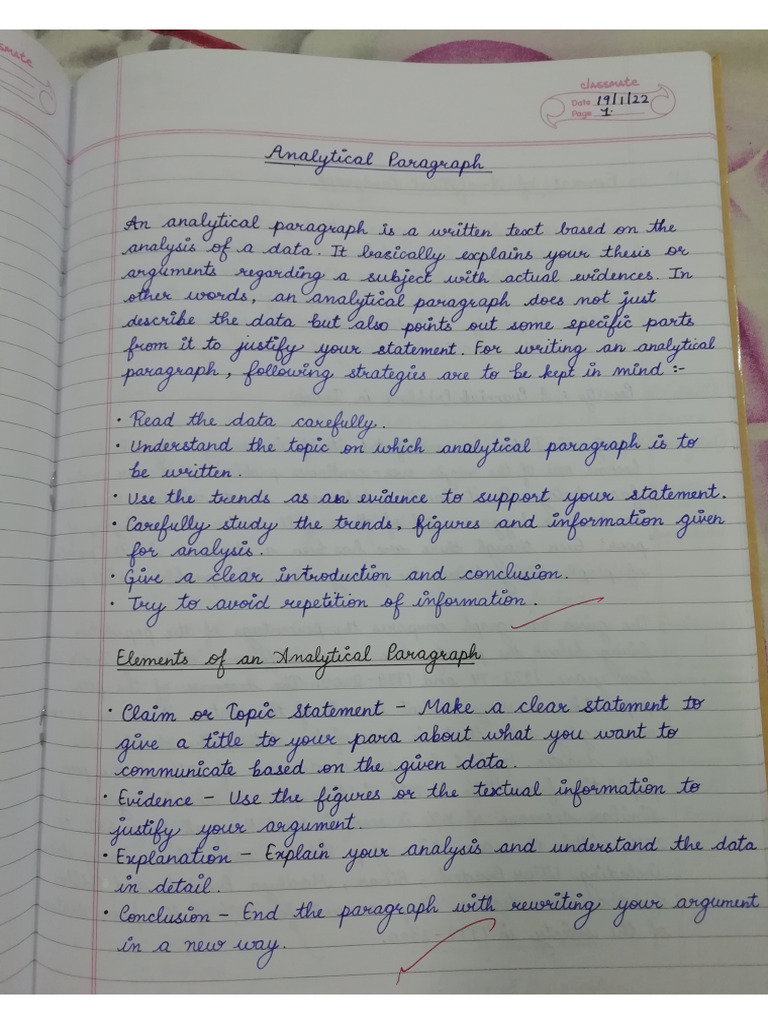 classmate
classmate
Date 19/1/22
Page 1.
Analytical Paragraph
An analytical paragraph is a written text based on the
analysis of a data. It basically explains your thesis or
arguments regarding a subject with actual evidences. In
other words, an analytical paragraph does not just
describe the data but also points out some specific parts
from it to justify your statement. For writing an analytical
paragraph, following strategies are to be kept in mind :-
• Read the data carefully.
• Understand the topic on which analytical paragraph is to
be written.
• Use the trends as an evidence to support your statement.
• Carefully study the trends, figures and information given
for analysis.
• Give a clear introduction and conclusion.
• Try to avoid repetition of information.
Elements of an Analytical Paragraph
• Claim or Topic Statement - Make a clear statement to
give a title to your para about what you want to
communicate based on the given data.
• Evidence - Use the figures or the textual information to
justify your argument.
• Explanation - Explain your analysis and understand the data
in detail.
• Conclusion - End the paragraph with rewriting your argument
in a new way.